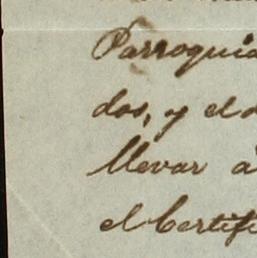 Parroquia
dos, y el d
llevar a
el Certifi